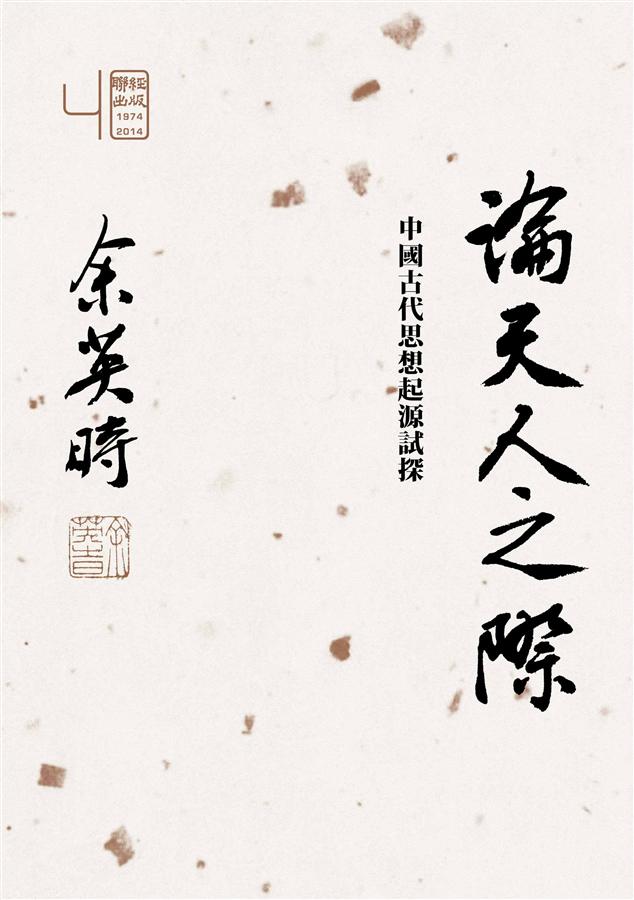 論天人之際
中國古代思想起源試探
余英時
余英時
40
聯經
出版
1974
2014